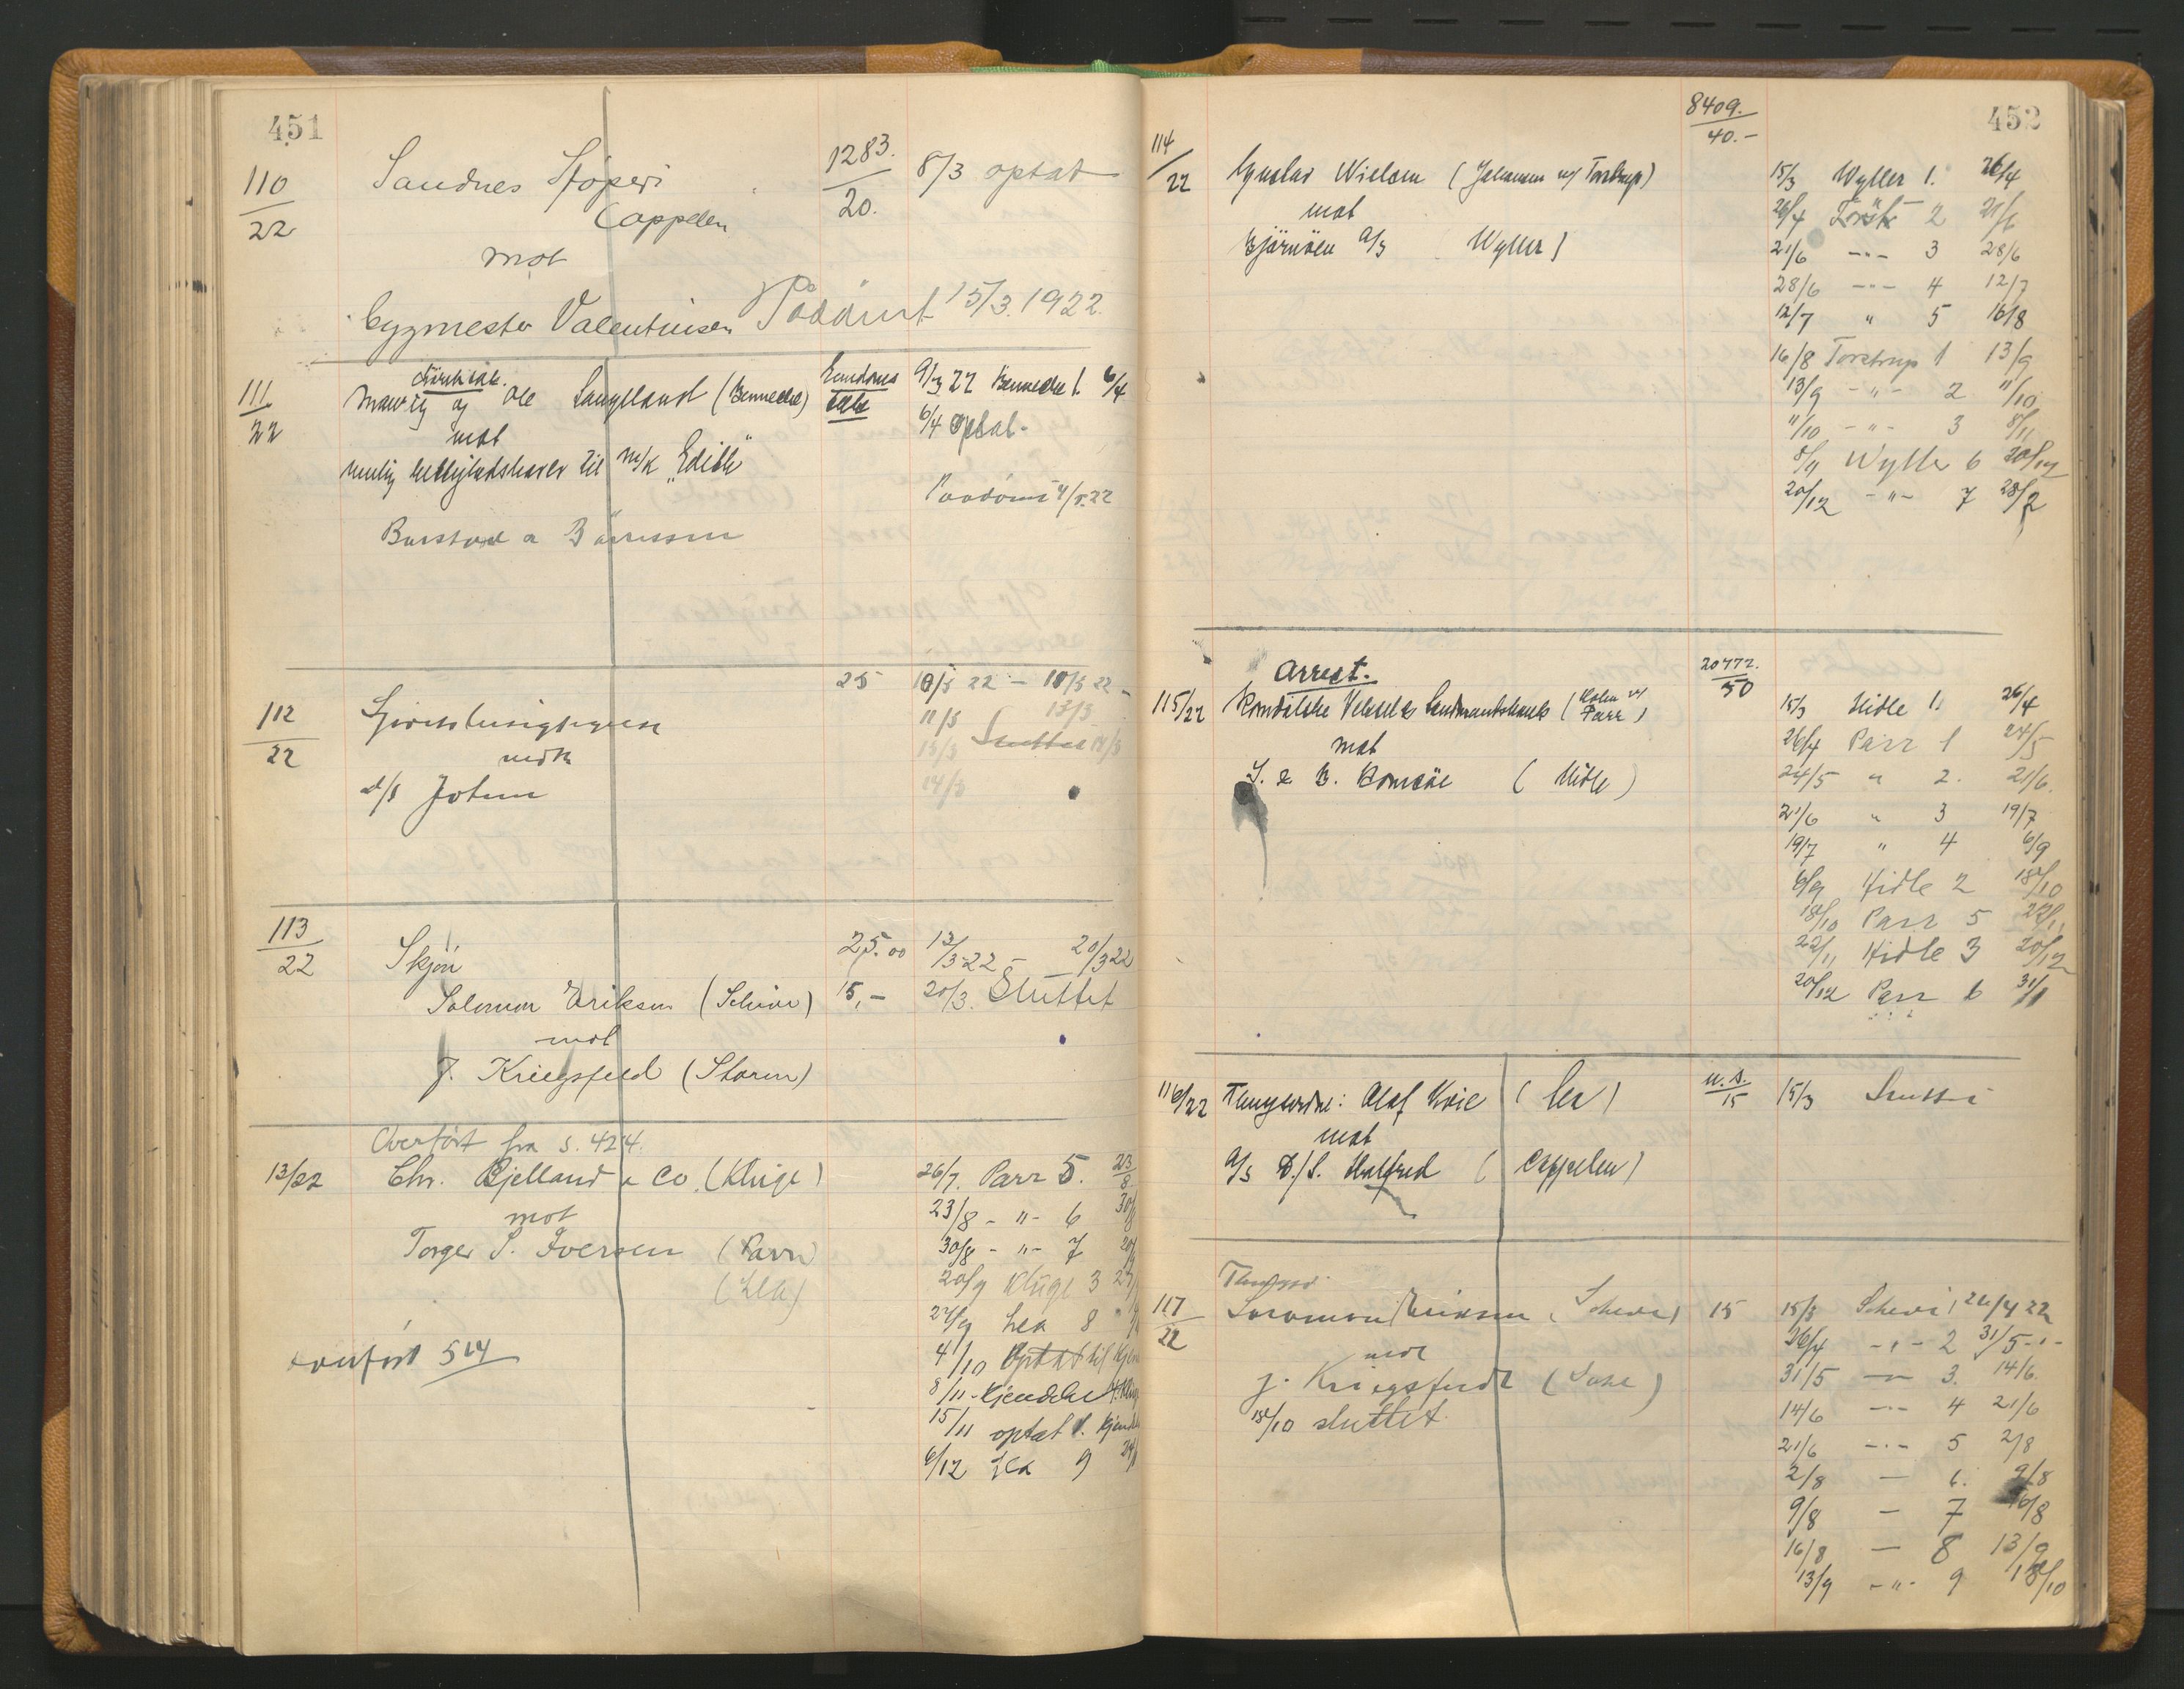 451
110/22 Sandnes Støperi 1283./20. 8/3 optat
Cappelen
mot
bygmester Valentinsen Pådømt 15/3.1922.
111/22 og Ole Langeland (Benneche) 9/3 22 Benneche 1. 6/4
mot 6/4 optat.
til m/k "Edith"
Paadömt 4/5.22
112/22 25 10/3 22 - 10/3 22
11/3 13/3
13/3 Sluttet 14/3
14/3
a/s Jotun
113/22 Skjön 25.00 13/3-22 - 20/3 22
Salomon Eriksen (Scheie) 15,- 20/3. Sluttet
mot
J. Kriegsfeld (Storm)
Overfört fra s. 424.
13/22 Chr. Bjelland & Co. (Kluge) 26/7. Parr 5. 23/8
mot 23/8 - " - 6 30/8
Torger S. Iversen (Parr) 30/8 - " - 7
(Lea) 20/9 Kluge 3
27/9 Lea 8
overfört 514 4/10 Optat til
8/11 - Kjendelse
15/11 optat t.
6/12 Lea 9
452
8409./40.-
114/22 Nielsen (Johannsen v/ Torstrup) 15/3 Wyller 1. 26/4
mot 26/4 Torstr 2 21/6
Björnöen A/S Wyller) 21/6 -"- 3 28/6
28/6 -"- 4 12/7
12/7 " 5 16/8
16/8 Torstrup 1 13/9
13/9 - " - 2 11/10
11/10 - " - 3 8/11
8/11 Wyller 6 20/12
20/12 - " - 7 28/2
Arrest. 20772./50
115/22 Romsdalske Veksel & Landmandsbank (Holm v/ Parr) 15/3 Hidle 1. 26/4
mot 26/4 Parr 1 24/5
(Hidle) 24/5 " 2. 21/6.
21/6 " 3 19/7
19/7 " 4 6/9
6/9 Hidle 2 18/10
18/10 Parr 5 22/11
22/11 Hidle 3 20/12
20/12 Parr 6 31/1
116/22 Olaf Kvie (Lea) u.s./15 15/3
mot
A/S D/S. Halfred (Cappelen)
117/22 Salomon Eriksen (Scheie) 15 15/3 Scheie 1 26/4 22
mot 26/4 -"- 2 31/5 -"-
J. Kriegsfeldt 31/5 -"- 3. 14/6.
18/10 sluttet. 14/6 -"- 4 21/6
21/6 -"- 5 2/8
2/8 — 6. 9/8
9/8 — 7 16/8
16/8 — 8 13/9
13/9 -"- 9 18/10